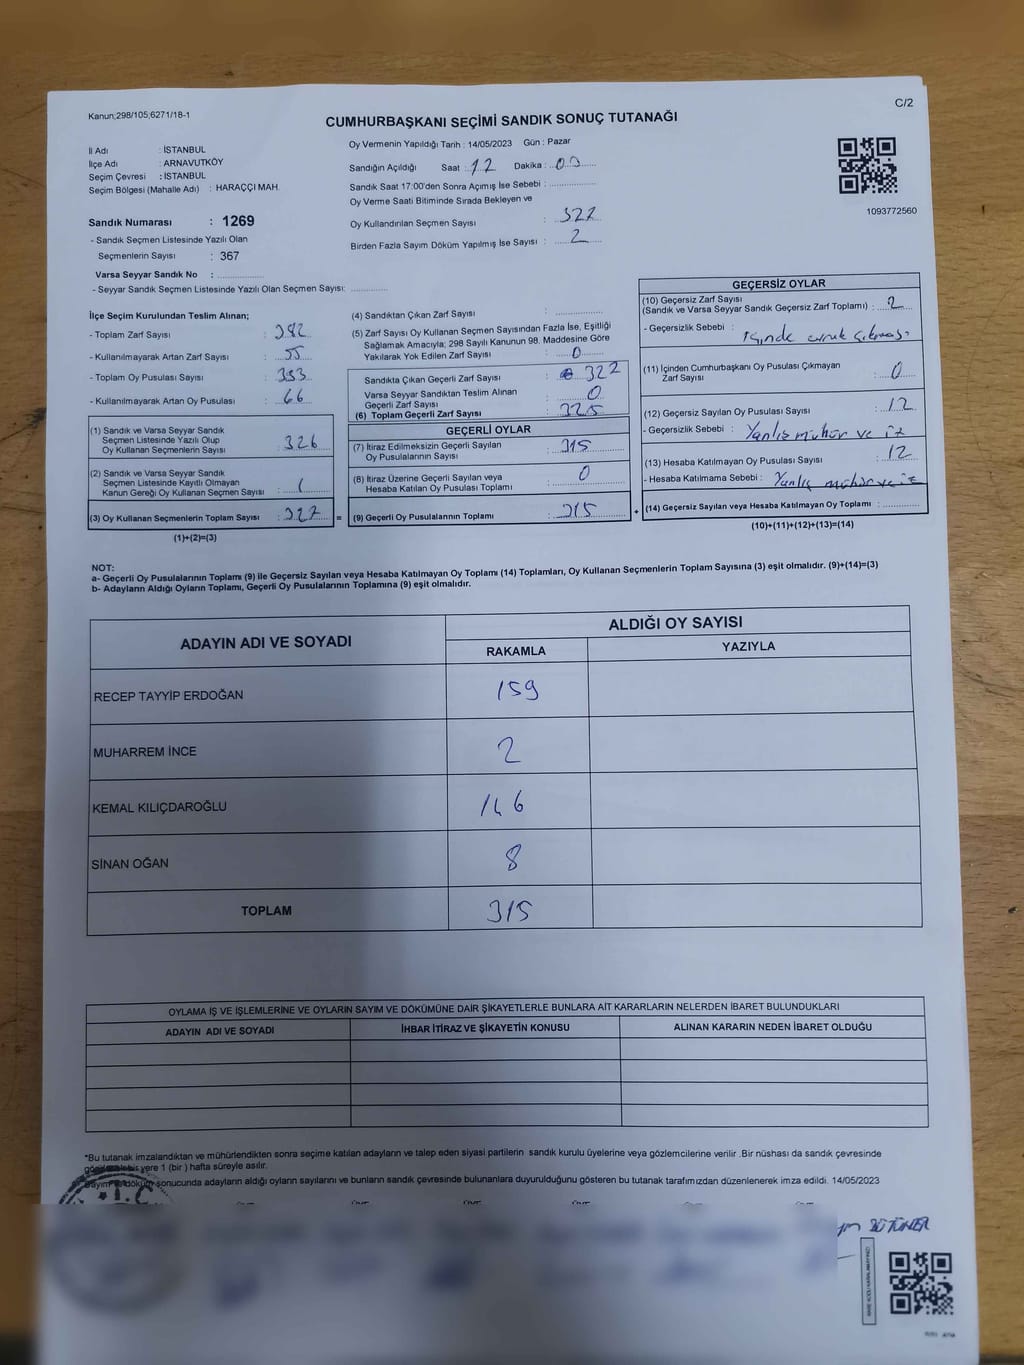 Kanun;298/105;6271/18-1
C/2
CUMHURBAŞKANI SEÇİMİ SANDIK SONUÇ TUTANAĞI
İl Adı : İSTANBUL
İlçe Adı : ARNAVUTKÖY
Seçim Çevresi : İSTANBUL
Seçim Bölgesi (Mahalle Adı) : HARAÇÇI MAH.
Sandık Numarası : 1269
- Sandık Seçmen Listesinde Yazılı Olan
Seçmenlerin Sayısı : 367
Varsa Seyyar Sandık No :
- Seyyar Sandık Seçmen Listesinde Yazılı Olan Seçmen Sayısı:
Oy Vermenin Yapıldığı Tarih : 14/05/2023 Gün : Pazar
Sandığın Açıldığı Saat : 12 Dakika : 00
Sandık Saat 17:00'den Sonra Açımış İse Sebebi :
Oy Verme Saati Bitiminde Sırada Bekleyen ve
Oy Kullandırılan Seçmen Sayısı : 322
Birden Fazla Sayım Döküm Yapılmış İse Sayısı : 2
1093772560
İlçe Seçim Kurulundan Teslim Alınan;
- Toplam Zarf Sayısı : 382
- Kullanılmayarak Artan Zarf Sayısı : 55
- Toplam Oy Pusulası Sayısı : 393
- Kullanılmayarak Artan Oy Pusulası : 66
(1) Sandık ve Varsa Seyyar Sandık
Seçmen Listesinde Yazılı Olup
Oy Kullanan Seçmenlerin Sayısı : 326
(2) Sandık ve Varsa Seyyar Sandık
Seçmen Listesinde Kayıtlı Olmayan
Kanun Gereği Oy Kullanan Seçmen Sayısı : 1
(3) Oy Kullanan Seçmenlerin Toplam Sayısı : 327
(1)+(2)=(3)
=
(4) Sandıktan Çıkan Zarf Sayısı :
(5) Zarf Sayısı Oy Kullanan Seçmen Sayısından Fazla İse, Eşitliği
Sağlamak Amacıyla; 298 Sayılı Kanunun 98. Maddesine Göre
Yakılarak Yok Edilen Zarf Sayısı : 0
Sandıkta Çıkan Geçerli Zarf Sayısı : 322
Varsa Seyyar Sandıktan Teslim Alınan
Geçerli Zarf Sayısı : 0
(6) Toplam Geçerli Zarf Sayısı : 325
GEÇERLİ OYLAR
(7) İtiraz Edilmeksizin Geçerli Sayılan
Oy Pusulalarının Sayısı : 315
(8) İtiraz Üzerine Geçerli Sayılan veya
Hesaba Katılan Oy Pusulası Toplamı : 0
(9) Geçerli Oy Pusulalarının Toplamı : 315
+
GEÇERSİZ OYLAR
(10) Geçersiz Zarf Sayısı
(Sandık ve Varsa Seyyar Sandık Geçersiz Zarf Toplamı) : 2
- Geçersizlik Sebebi : içinde evrak çıkması
(11) İçinden Cumhurbaşkanı Oy Pusulası Çıkmayan
Zarf Sayısı : 0
(12) Geçersiz Sayılan Oy Pusulası Sayısı : 12
- Geçersizlik Sebebi : Yanlış mühür ve iz
(13) Hesaba Katılmayan Oy Pusulası Sayısı : 12
- Hesaba Katılmama Sebebi : Yanlış mühür ve iz
(14) Geçersiz Sayılan veya Hesaba Katılmayan Oy Toplamı :
(10)+(11)+(12)+(13)=(14)
NOT:
a- Geçerli Oy Pusulalarının Toplamı (9) ile Geçersiz Sayılan veya Hesaba Katılmayan Oy Toplamı (14) Toplamları, Oy Kullanan Seçmenlerin Toplam Sayısına (3) eşit olmalıdır. (9)+(14)=(3)
b- Adayların Aldığı Oyların Toplamı, Geçerli Oy Pusulalarının Toplamına (9) eşit olmalıdır.
ADAYIN ADI VE SOYADI
ALDIĞI OY SAYISI
RAKAMLA YAZIYLA
RECEP TAYYİP ERDOĞAN 159
MUHARREM İNCE 2
KEMAL KILIÇDAROĞLU 146
SİNAN OĞAN 8
TOPLAM 315
OYLAMA İŞ VE İŞLEMLERİNE VE OYLARIN SAYIM VE DÖKÜMÜNE DAİR ŞİKAYETLERLE BUNLARA AİT KARARLARIN NELERDEN İBARET BULUNDUKLARI
ADAYIN ADI VE SOYADI İHBAR İTİRAZ VE ŞİKAYETİN KONUSU ALINAN KARARIN NEDEN İBARET OLDUĞU
*Bu tutanak imzalandıktan ve mühürlendikten sonra seçime katılan adayların ve talep eden siyasi partilerin sandık kurulu üyelerine veya gözlemcilerine verilir .Bir nüshası da sandık çevresinde
görülebilir yere 1 (bir ) hafta süreyle asılır.
Sayım ve döküm sonucunda adayların aldığı oyların sayılarını ve bunların sandık çevresinde bulunanlara duyurulduğunu gösteren bu tutanak tarafımızdan düzenlenerek imza edildi. 14/05/2023
T.C
BÜTÜNER